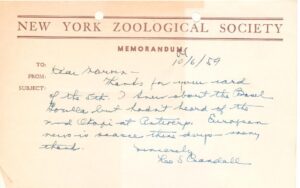 NEW YORK ZOOLOGICAL SOCIETY
MEMORANDUM
10/6/59
TO:
FROM:
SUBJECT:
Dear Marvin -
Thanks for your card
of the 5th. I knew about the Basel
Gorilla but hadn't heard of the
2nd Okapi at Antwerp. European
news is scarce these days - many
thanks.
Sincerely
Lee S Crandall